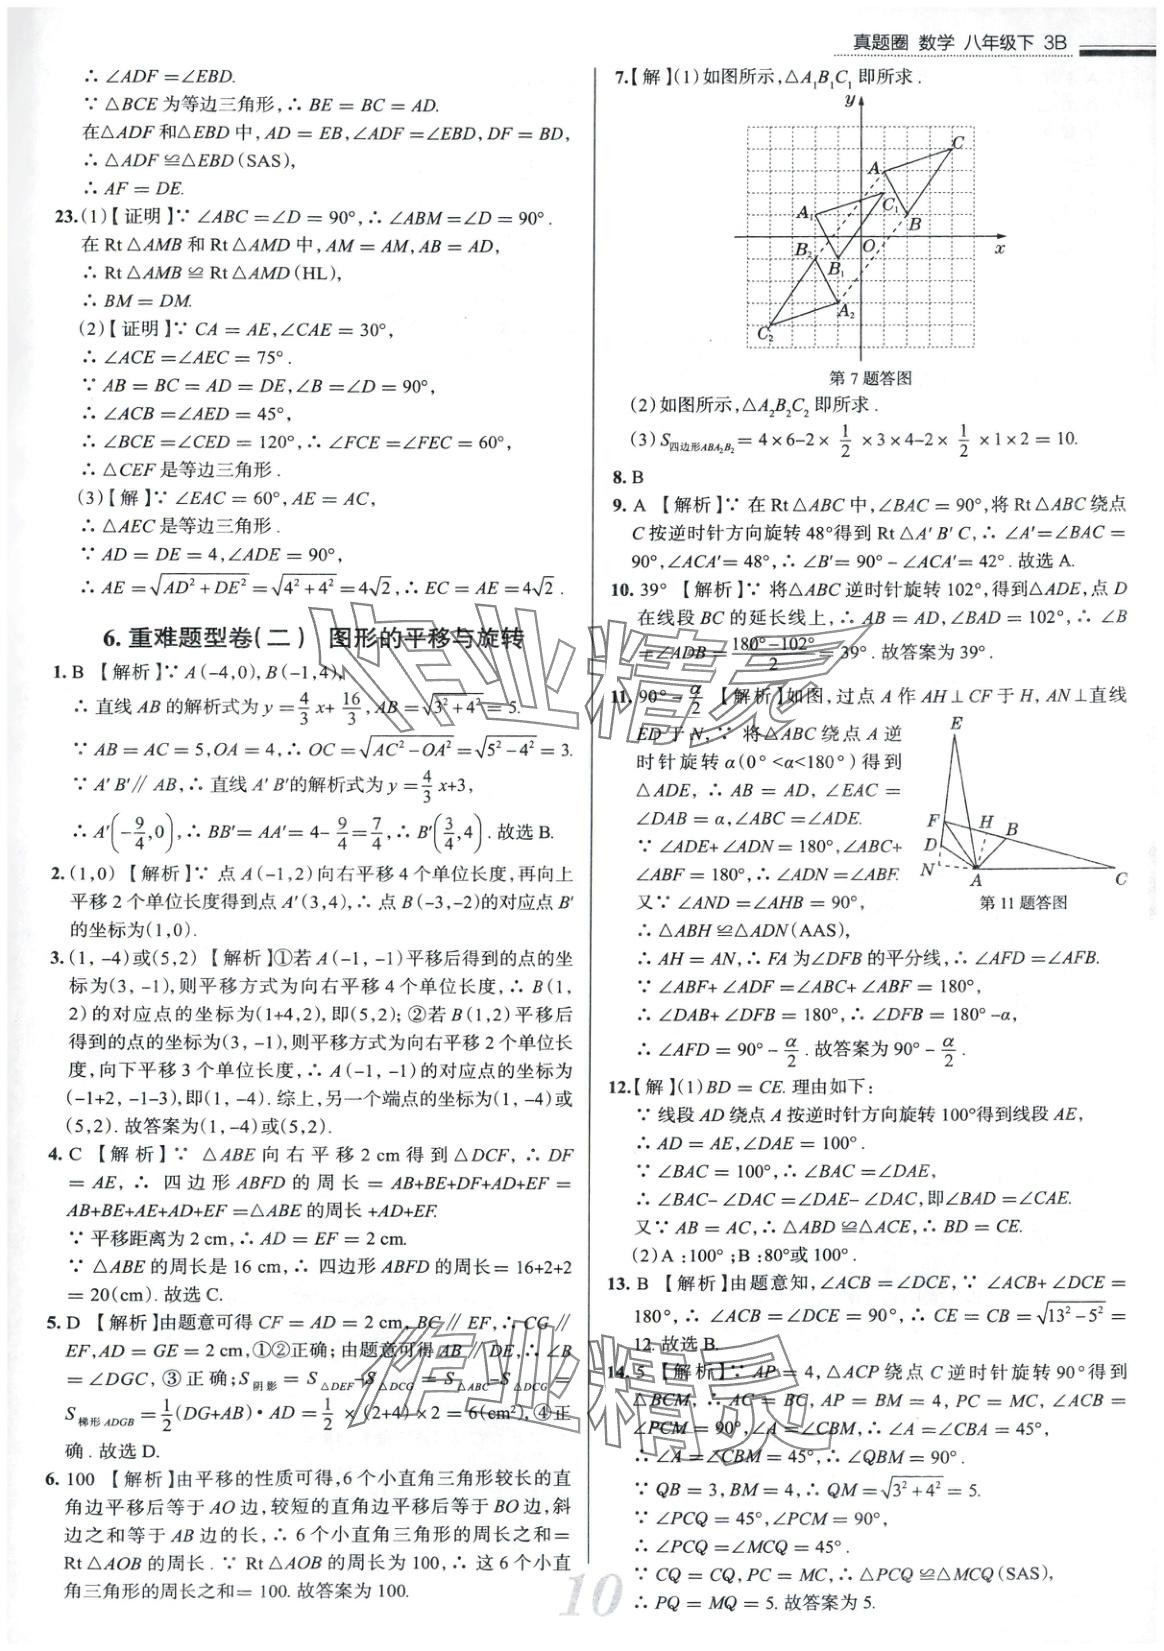 真题圈 数学 八年级下 3B
∴ ∠ADF =∠EBD.
∵ △BCE 为等边三角形,∴ BE = BC = AD.
在△ADF 和△EBD 中,AD = EB,∠ADF =∠EBD, DF = BD,
∴ △ADF ≌△EBD(SAS),
∴ AF = DE.
23.(1)【证明】∵ ∠ABC =∠D = 90°,∴ ∠ABM =∠D = 90°.
在 Rt△AMB 和 Rt△AMD 中, AM = AM, AB = AD,
∴ Rt△AMB ≌ Rt△AMD(HL),
∴ BM = DM.
(2)【证明】∵ CA = AE,∠CAE = 30°,
∴ ∠ACE =∠AEC = 75°.
∵ AB = BC = AD = DE,∠B =∠D = 90°,
∴ ∠ACB =∠AED = 45°,
∴ ∠BCE =∠CED = 120°,∴ ∠FCE =∠FEC = 60°,
∴ △CEF 是等边三角形.
(3)【解】∵ ∠EAC = 60°, AE = AC,
∴ △AEC 是等边三角形.
∵ AD = DE = 4,∠ADE = 90°,
∴ AE = √(AD²+DE²) = √(4²+4²) = 4√2,∴ EC = AE = 4√2.
6. 重难题型卷(二) 图形的平移与旋转
1. B 【解析】∵ A(-4,0), B(-1,4),
∴ 直线 AB 的解析式为 y = 4/3 x+ 16/3, AB = √(3²+4²) = 5.
∵ AB = AC = 5, OA = 4,∴ OC = √(AC²-OA²) = √(5²-4²) = 3.
∵ A′B′∥AB,∴ 直线 A′B′的解析式为 y = 4/3 x+3,
∴ A′(-9/4,0),∴ BB′= AA′= 4- 9/4 = 7/4,∴ B′(3/4,4).故选 B.
2. (1,0) 【解析】∵ 点 A(-1,2)向右平移 4 个单位长度,再向上
平移 2 个单位长度得到点 A′(3,4),∴ 点 B(-3,-2)的对应点 B′
的坐标为(1,0).
3. (1, -4)或(5,2) 【解析】①若 A(-1, -1)平移后得到的点的坐
标为(3, -1),则平移方式为向右平移 4 个单位长度,∴ B(1,
2)的对应点的坐标为(1+4,2),即(5,2);②若 B(1,2)平移后
得到的点的坐标为(3, -1),则平移方式为向右平移 2 个单位长
度,向下平移 3 个单位长度,∴ A(-1, -1)的对应点的坐标为
(-1+2, -1-3),即(1, -4).综上,另一个端点的坐标为(1, -4)或
(5,2).故答案为(1, -4)或(5,2).
4. C 【解析】∵ △ABE 向右平移 2 cm 得到△DCF,∴ DF
= AE,∴ 四边形 ABFD 的周长 = AB+BE+DF+AD+EF =
AB+BE+AE+AD+EF =△ABE 的周长 +AD+EF.
∵ 平移距离为 2 cm,∴ AD = EF = 2 cm.
∵ △ABE 的周长是 16 cm,∴ 四边形 ABFD 的周长= 16+2+2
= 20(cm).故选 C.
5. D 【解析】由题意可得 CF = AD = 2 cm, BC∥EF,∴ CG∥
EF, AD = GE = 2 cm,①②正确;由题意可得 AB∥DE,∴ ∠B
=∠DGC,③正确;S阴影 = S△DEF -S△DCG = S△ABC-S△DCG =
S梯形ADGB = 1/2 (DG+AB)·AD = 1/2 ×(2+4)×2 = 6(cm²),④正
确.故选 D.
6. 100 【解析】由平移的性质可得,6 个小直角三角形较长的直
角边平移后等于 AO 边,较短的直角边平移后等于 BO 边,斜
边之和等于 AB 边的长,∴ 6 个小直角三角形的周长之和=
Rt△AOB 的周长.∵ Rt△AOB 的周长为 100,∴ 这 6 个小直
角三角形的周长之和= 100.故答案为 100.
7.【解】(1)如图所示,△A₁B₁C₁ 即所求.
y
C
A
A₁
C₁
B
O
x
B₂
B₁
A₂
C₂
第 7 题答图
(2)如图所示,△A₂B₂C₂ 即所求.
(3) S四边形ABA₂B₂ = 4×6-2× 1/2 ×3×4-2× 1/2 ×1×2 = 10.
8. B
9. A 【解析】∵ 在 Rt△ABC 中,∠BAC = 90°,将 Rt△ABC 绕点
C 按逆时针方向旋转 48°得到 Rt△A′B′C,∴ ∠A′=∠BAC =
90°,∠ACA′= 48°,∴ ∠B′= 90°-∠ACA′= 42°.故选 A.
10. 39° 【解析】∵ 将△ABC 逆时针旋转 102°,得到△ADE,点 D
在线段 BC 的延长线上,∴ AB = AD,∠BAD = 102°,∴ ∠B
=∠ADB = (180°-102°)/2 = 39°.故答案为 39°.
11. 90°- α/2 【解析】如图,过点 A 作 AH⊥CF 于 H, AN⊥直线
ED 于 N,∵ 将△ABC 绕点 A 逆
时针旋转 α(0°<α<180°)得到
△ADE,∴ AB = AD,∠EAC =
∠DAB = α,∠ABC =∠ADE.
∵ ∠ADE+∠ADN = 180°,∠ABC+
∠ABF = 180°,∴ ∠ADN =∠ABF.
又∵ ∠AND =∠AHB = 90°,
∴ △ABH ≌△ADN(AAS),
E
F
H
B
D
N
A
C
第 11 题答图
∴ AH = AN,∴ FA 为∠DFB 的平分线,∴ ∠AFD =∠AFB.
∵ ∠ABF+∠ADF =∠ABC+∠ABF = 180°,
∴ ∠DAB+∠DFB = 180°,∴ ∠DFB = 180°-α,
∴ ∠AFD = 90°- α/2.故答案为 90°- α/2.
12.【解】(1) BD = CE.理由如下:
∵ 线段 AD 绕点 A 按逆时针方向旋转 100°得到线段 AE,
∴ AD = AE,∠DAE = 100°.
∵ ∠BAC = 100°,∴ ∠BAC =∠DAE,
∴ ∠BAC-∠DAC =∠DAE-∠DAC,即∠BAD =∠CAE.
又∵ AB = AC,∴ △ABD ≌△ACE,∴ BD = CE.
(2) A:100°;B:80°或 100°.
13. B 【解析】由题意知,∠ACB =∠DCE,∵ ∠ACB+∠DCE =
180°,∴ ∠ACB =∠DCE = 90°,∴ CE = CB = √(13²-5²) =
12.故选 B.
14. 5 【解析】∵ AP = 4,△ACP 绕点 C 逆时针旋转 90°得到
△BCM,∴ AC = BC, AP = BM = 4, PC = MC,∠ACB =
∠PCM = 90°,∠A =∠CBM,∴ ∠A =∠ABC = 45°,
∴ ∠A =∠CBM = 45°,∴ ∠QBM = 90°.
∵ QB = 3, BM = 4,∴ QM = √(3²+4²) = 5.
∵ ∠PCQ = 45°,∠PCM = 90°,
∴ ∠PCQ =∠MCQ = 45°.
∵ CQ = CQ, PC = MC,∴ △PCQ ≌△MCQ(SAS),
∴ PQ = MQ = 5.故答案为 5.
作业精灵
作业精灵
10